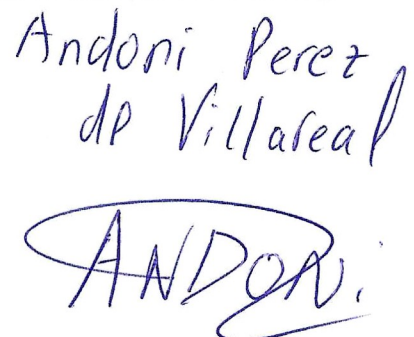 Andoni Perez
de Villareal
ANDONi